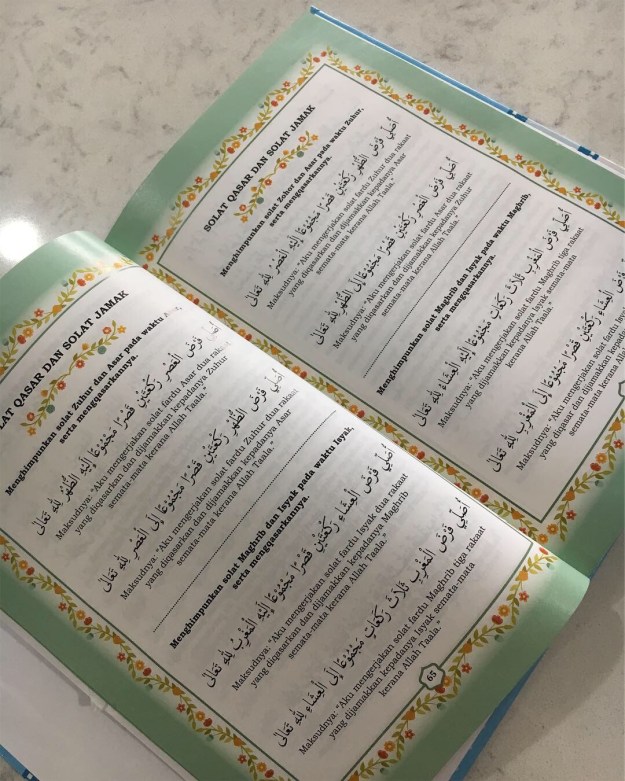 SOLAT QASAR DAN SOLAT JAMAK
Menghimpunkan solat Zohor dan Asar pada waktu Zuhur,
serta mengqasarkannya.
أُصَلِّي فَرْضَ الظُّهْرِ رَكْعَتَيْنِ قَصْرًا مَجْمُوْعًا إِلَيْهِ الْعَصْرُ لِلّٰهِ تَعَالَى
Maksudnya: "Aku mengerjakan solat fardu Zuhur dua rakaat
yang diqasarkan dan dijamakkan kepadanya Asar
semata-mata kerana Allah Taala."
أُصَلِّي فَرْضَ الْعَصْرِ رَكْعَتَيْنِ قَصْرًا مَجْمُوْعًا إِلَى الظُّهْرِ لِلّٰهِ تَعَالَى
Maksudnya: "Aku mengerjakan solat fardu Asar dua rakaat
yang diqasarkan dan dijamakkan kepadanya Zuhur
semata-mata kerana Allah Taala."
Menghimpunkan solat Maghrib dan Isyak pada waktu Maghrib,
serta mengqasarkannya.
أُصَلِّي فَرْضَ الْمَغْرِبِ ثَلَاثَ رَكَعَاتٍ مَجْمُوْعًا إِلَيْهِ الْعِشَاءُ لِلّٰهِ تَعَالَى
Maksudnya: "Aku mengerjakan solat fardu Maghrib tiga rakaat
yang dijamakkan kepadanya Isyak semata-mata
kerana Allah Taala."
فَرْضَ الْعِشَاءِ رَكْعَتَيْنِ قَصْرًا مَجْمُوْعًا إِلَى الْمَغْرِبِ لِلّٰهِ تَعَالَى
Maksudnya: "Aku mengerjakan solat fardu
yang diqasar dan dijamakkan
semata-mata kerana
QASAR DAN SOLAT JAMAK
Menghimpunkan solat Zuhur dan Asar pada waktu
serta mengqasarkannya.
فَرْضَ الْعَصْرِ رَكْعَتَيْنِ قَصْرًا مَجْمُوْعًا إِلَيْهِ الظُّهْرُ لِلّٰهِ تَعَالَى
Maksudnya: "Aku mengerjakan solat fardu Asar dua
yang diqasarkan dan dijamakkan kepadanya Zuhur
semata-mata kerana Allah Taala."
أُصَلِّي فَرْضَ الظُّهْرِ رَكْعَتَيْنِ قَصْرًا مَجْمُوْعًا إِلَى الْعَصْرِ لِلّٰهِ تَعَالَى
Maksudnya: "Aku mengerjakan solat fardu Zuhur dua rakaat
yang diqasarkan dan dijamakkan kepadanya Asar
semata-mata kerana Allah Taala."
Menghimpunkan solat Maghrib dan Isyak pada waktu Isyak,
serta mengqasarkannya.
أُصَلِّي فَرْضَ الْعِشَاءِ رَكْعَتَيْنِ قَصْرًا مَجْمُوْعًا إِلَيْهِ الْمَغْرِبُ لِلّٰهِ تَعَالَى
Maksudnya: "Aku mengerjakan solat fardu Isyak dua rakaat
yang diqasarkan dan dijamakkan kepadanya Maghrib
semata-mata kerana Allah Taala."
أُصَلِّي فَرْضَ الْمَغْرِبِ ثَلَاثَ رَكَعَاتٍ مَجْمُوْعًا إِلَى الْعِشَاءِ لِلّٰهِ تَعَالَى
Maksudnya: "Aku mengerjakan solat fardu Maghrib tiga rakaat
yang dijamakkan kepadanya Isyak semata-mata
kerana Allah Taala."
65